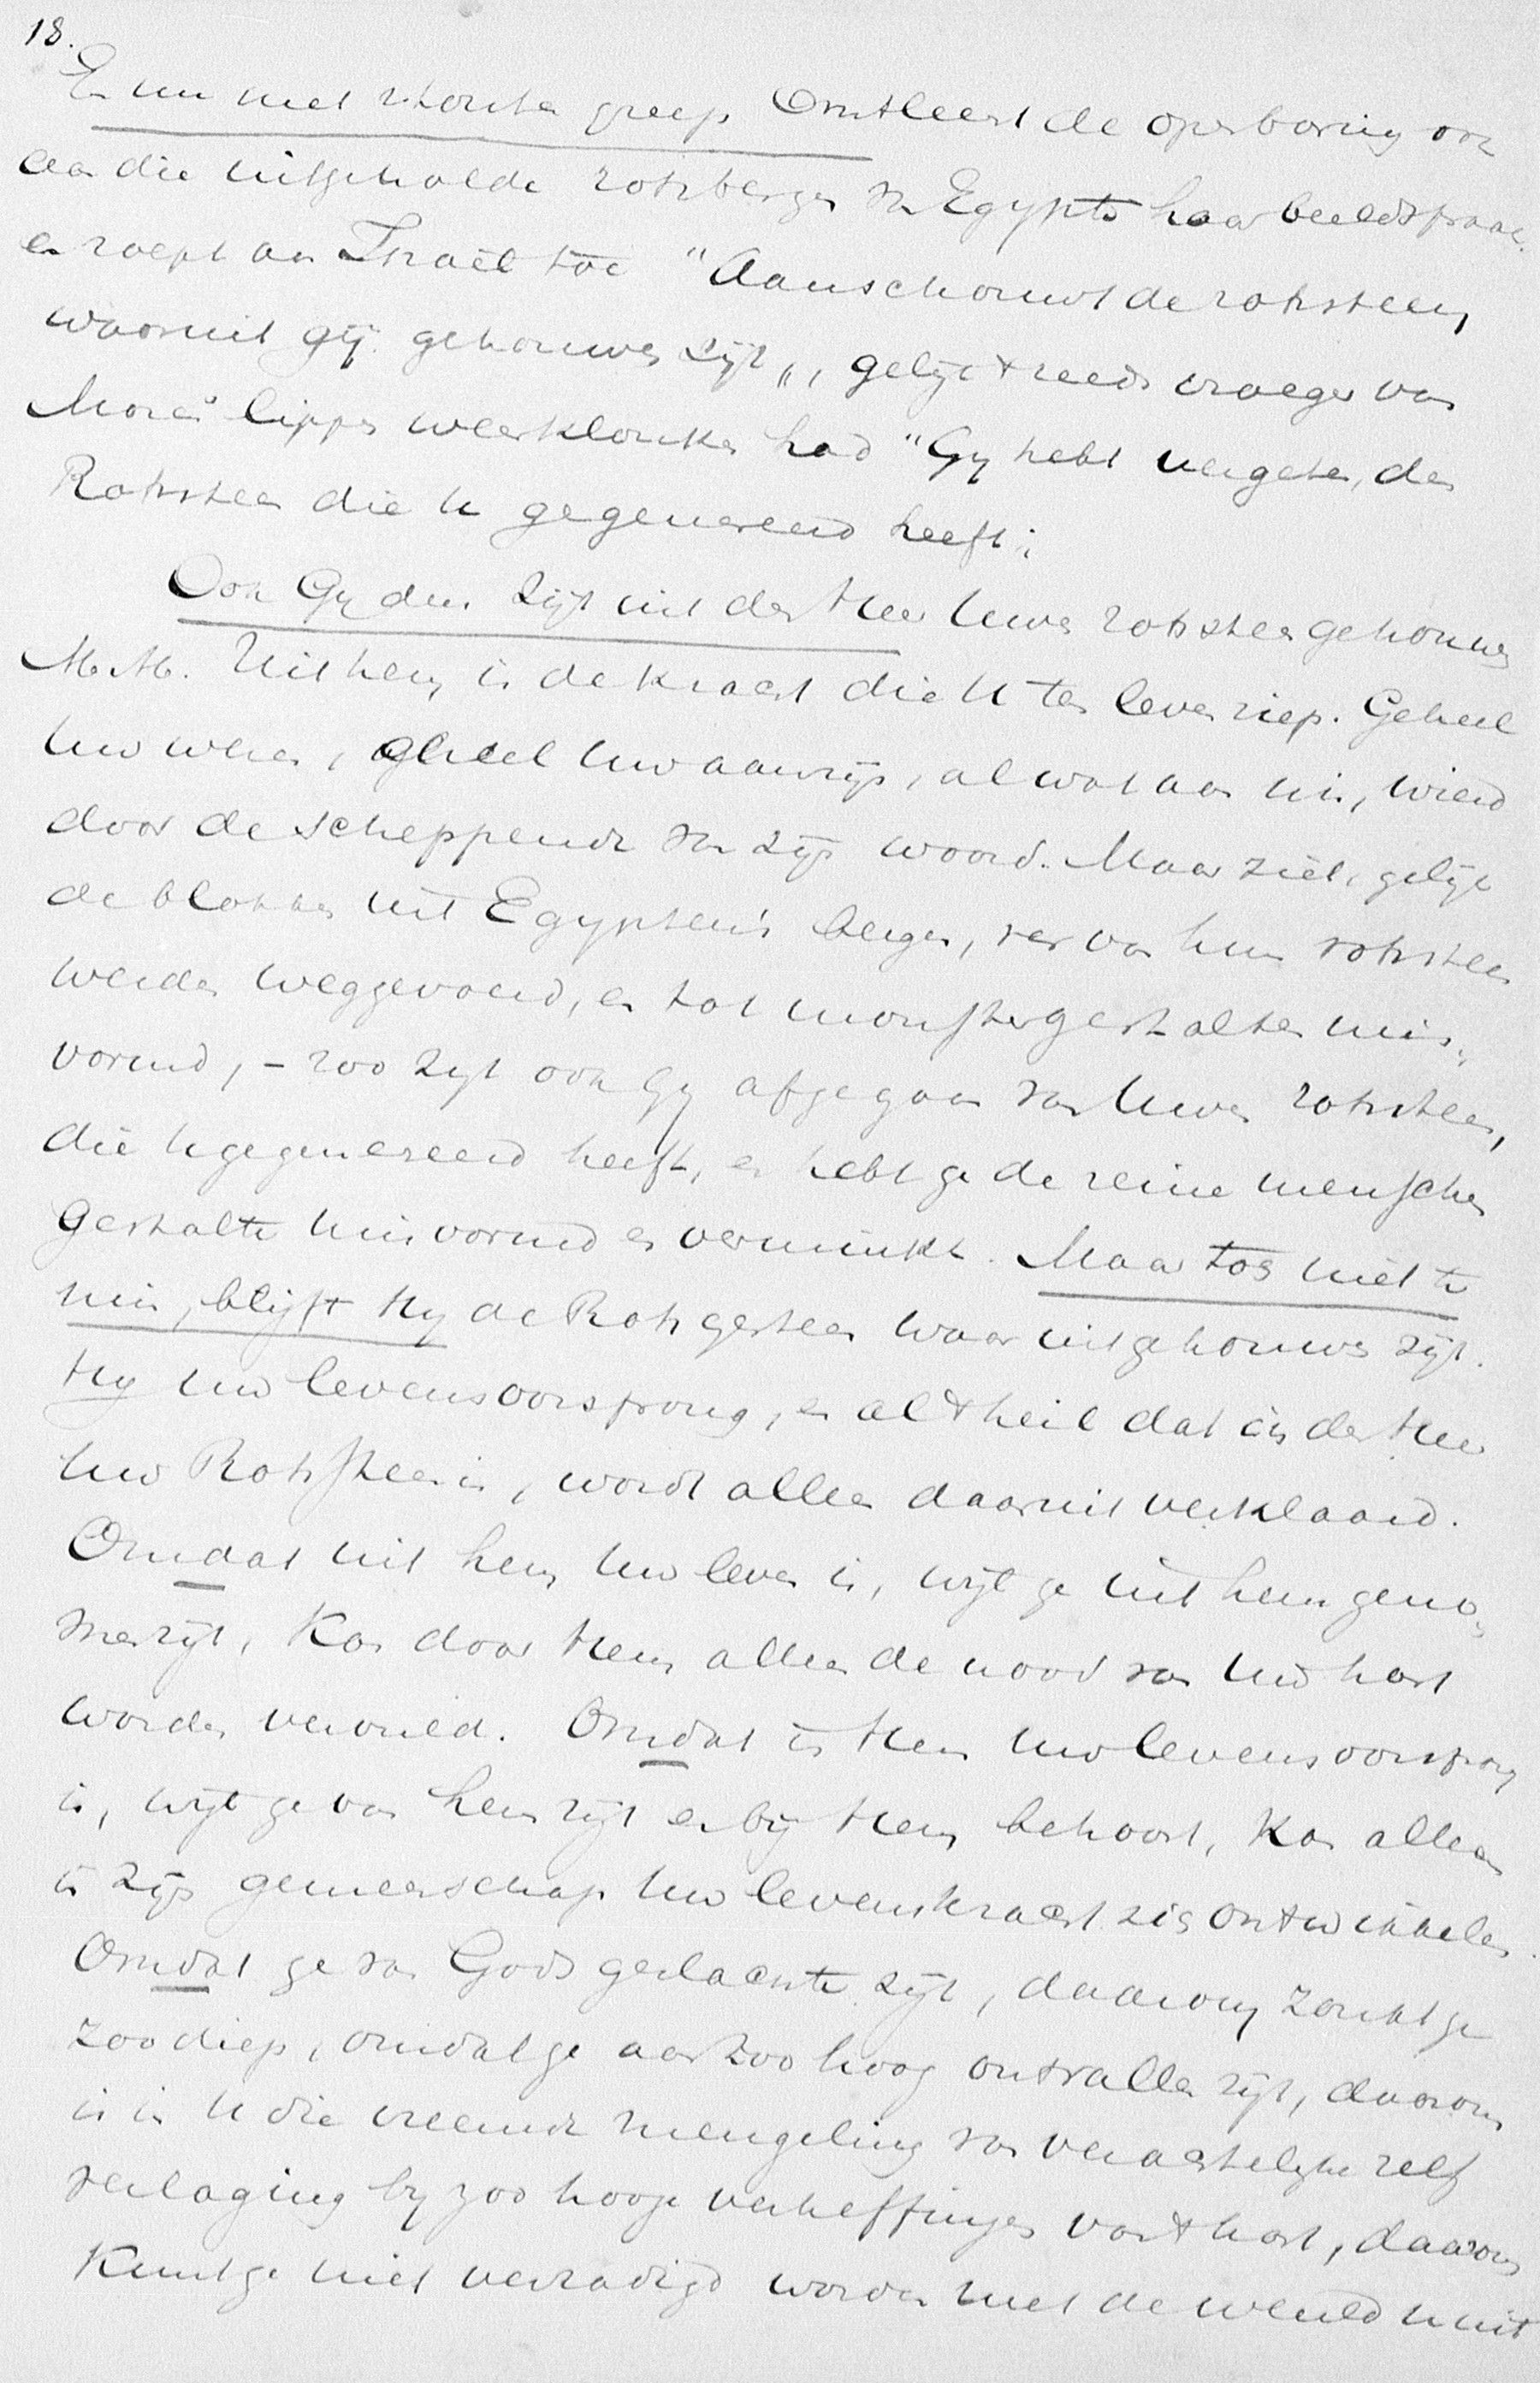 18.
En nu met stoute greep ontleent de openbaring ook
aan die uitgeholde rotsbergen van Egypte haar beeldspraak
en roept aan Israël toe "Aanschouwt de rotssteen,
waaruit gij gehouwen zijt", gelijk 't reeds vroeger van
Mozes lippen weerklonken had "Gy hebt vergeten, den
Rotssteen die U gegenereerd heeft;
Ook Gy dus zijt uit den Heer Uwen rotssteen gehouwen
M. M. Uit hem is de kracht die U ten leven riep. Geheel
Uw wezen, geheel Uw aanzijn, al wat aan U is, wierd
door de scheppende van zijn woord. Maar ziet, gelijk
de blokken uit Egypten's bergen, ver van hun rotssteen
werden weggevoerd, en tot monstergestalten mis-
vormd, – zoo zijt ook Gy afgegaan van Uwen rotssteen,
die U gegenereerd heeft, en hebt ge de reine menschen
gestalte misvormd en verminkt. Maar toch niet te
min, blijft Hy de Rotsgesteen waar uit gehouwen zijt.
Hy Uw levensoorsprong, en al 't heil dat in den Heer
Uw Rotssteen is, wordt alleen daaruit verklaard.
Omdat uit hem Uw leven is, wijl ge uit hem geno-
men zijt, kan door Hem alleen de nood van Uw hart
worden vervuld. Omdat in Hem Uw levensoorsprong
is, wijl ge van hem zijt en bij Hem behoort, kan alleen
in zijn gemeenschap Uw levenskracht zich ontwikkelen.
Omdat ge van Gods geslachte zijt, daarom zucht ge
zoo diep, omdat ge aan zoo hoog ontvallen zijt, daarom
is in U die vreemde mengeling van verachtelijke zelf
verlaging by zoo hooge verheffinges van 't hart, daarom
Kunt ge niet verzadigd worden met de wereld nuit